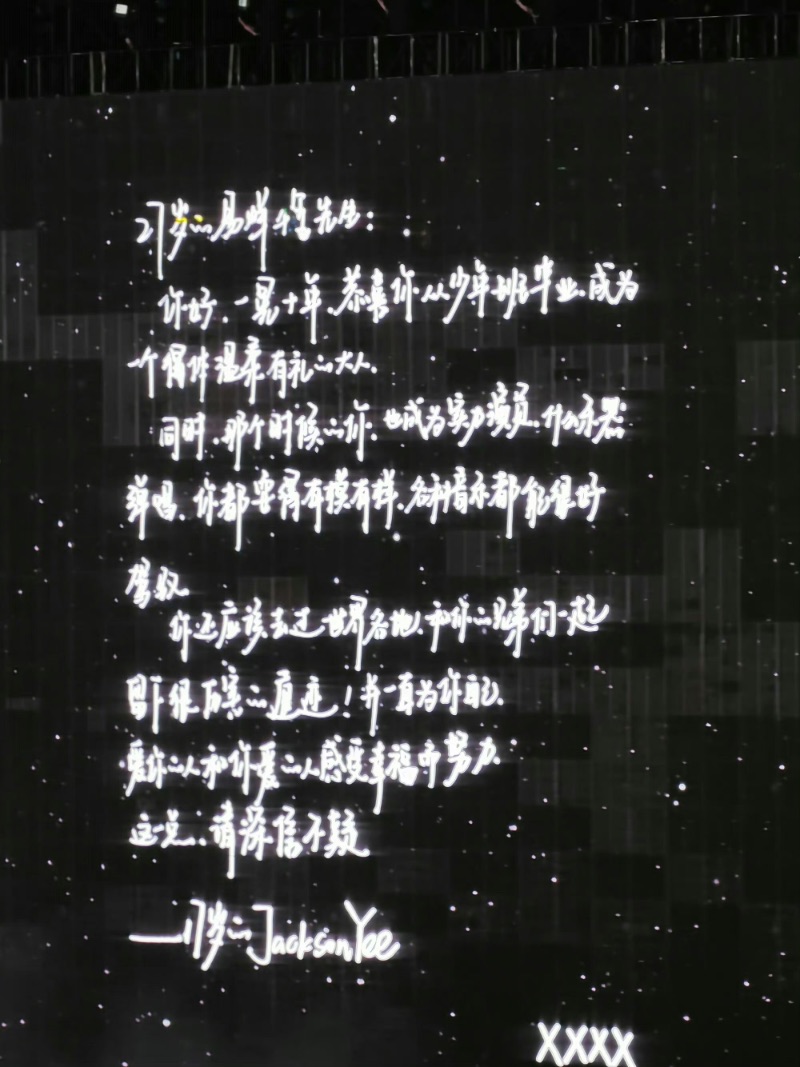 27岁的易烊千玺先生：
你好，一晃十年，恭喜你从少年班毕业，成为
一个得体温柔有礼的大人，
同时，那个时候的你，也成为实力演员，什么乐器
弹唱，你都要得有模有样，各种音乐都能很好
驾驭
你还应该去过世界各地，和你的兄弟们一起
留下很厉害的痕迹！并一直为你自己，
爱你的人和你爱的人感受幸福而努力，
这一点，请深信不疑
——17岁的Jackson Yee
XXXX